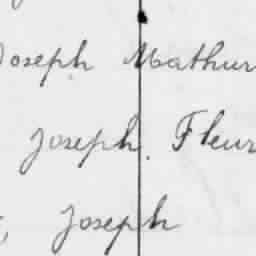 Joseph Mathur
Joseph. Fleur
Joseph